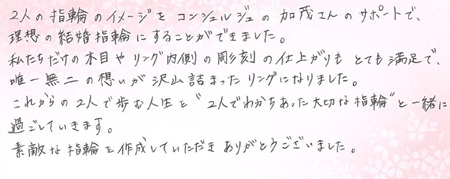 2人の指輪のイメージをコンシェルジュの加茂さんのサポートで、
理想の結婚指輪にすることができました。
私たちだけの木目やリング内側の彫刻の仕上がりもとても満足で、
唯一無二の想いが沢山詰まったリングになりました。
これからの2人で歩む人生と“2人でわかちあった大切な指輪”と一緒に
過ごしていきます。
素敵な指輪を作成していただきありがとうございました。